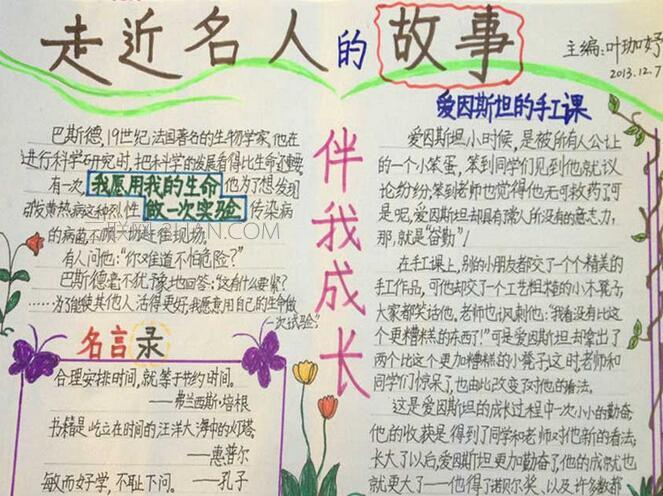 走近名人的故事
主编:叶珈妤
2013.12.7
巴斯德,19世纪法国著名的生物学家,他在
进行科学研究时,把科学的发展看得比生命还重要。
有一次,我愿用我的生命 他为了想发现
黄热病这种烈性 做一次实验 传染病
的病菌不顾一切赶往现场。
有人问他:“你难道不怕危险?”
巴斯德毫不犹豫地回答:“这有什么要紧?
……为了能使其他人活得更好,我愿意用自己的生命做
一次试验。”
名言录
合理安排时间,就等于节约时间。
——弗兰西斯·培根
书籍是屹立在时间的汪洋大海中的灯塔。
——惠普尔
敏而好学,不耻下问。
——孔子
伴我成长
爱因斯坦的手工课
爱因斯坦小时候,是被所有人公认
的一个小笨蛋,笨到同学们见到他就议
论纷纷,笨到老师也觉得他无可救药了,可
是呢,爱因斯坦却具有常人所没有的意志力,
那,就是“奋勤”!
在手工课上,别的小朋友都交了一个个精美的
手工作品,可他却交了一个工艺粗糙的小木凳子,
大家都笑话他。老师也讽刺他:“我看没有比这
个更糟糕的东西了!”可是爱因斯坦却拿出了
两个比这个更加糟糕的小凳子。这时,老师和
同学们惊呆了,也由此改变了对他的看法。
这是爱因斯坦的成长过程中一次小小的勤奋,
他的收获是得到了同学和老师对他新的看法;
长大了以后,爱因斯坦更加勤奋了,他的成就也
就更大了——他得了诺贝尔奖,以及许多数都